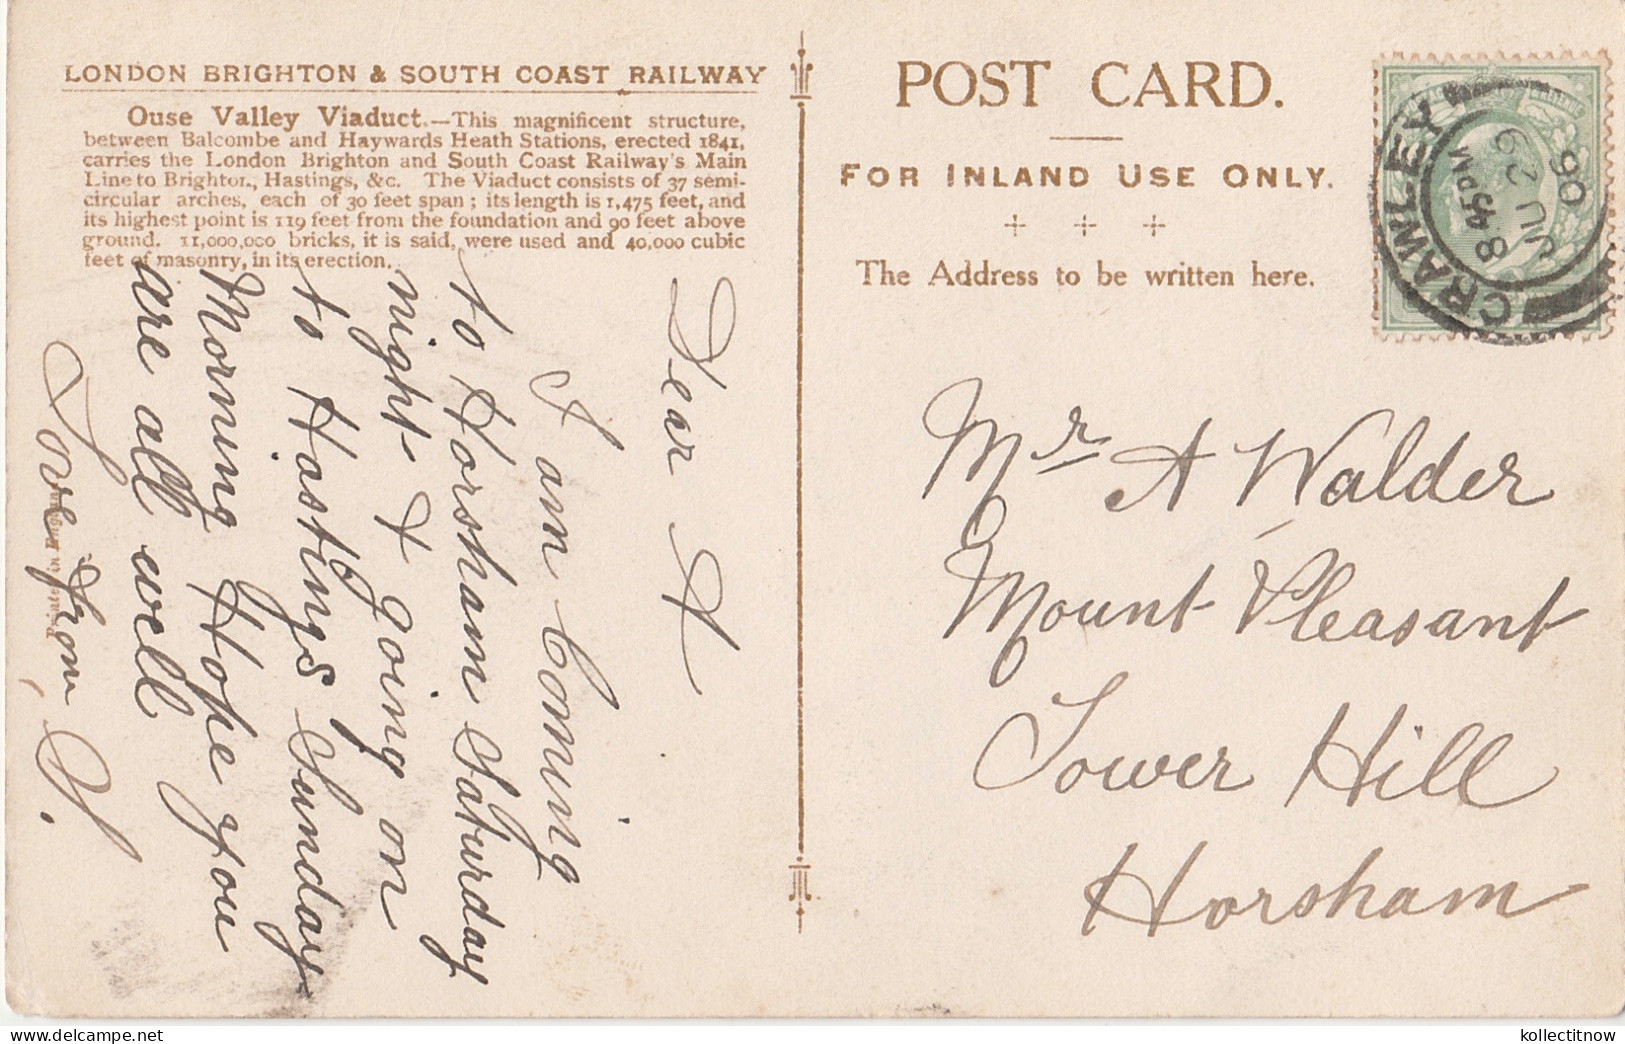 LONDON BRIGHTON & SOUTH COAST RAILWAY
Ouse Valley Viaduct.—This magnificent structure,
between Balcombe and Haywards Heath Stations, erected 1841,
carries the London Brighton and South Coast Railway's Main
Line to Brighton, Hastings, &c. The Viaduct consists of 37 semi-
circular arches, each of 30 feet span; its length is 1,475 feet, and
its highest point is 119 feet from the foundation and 90 feet above
ground. 11,000,000 bricks, it is said, were used and 40,000 cubic
feet of masonry, in its erection.
Dear A
I am Coming
to Horsham Saturday
night & going on
to Hastings Sunday
Morning Hope you
are all well
Love from
Printed in England
POST CARD.
FOR INLAND USE ONLY.
The Address to be written here.
CRAWLEY
8 45 PM
JU 29
06
Mr A Walder
Mount Pleasant
Tower Hill
Horsham
kollectitnow